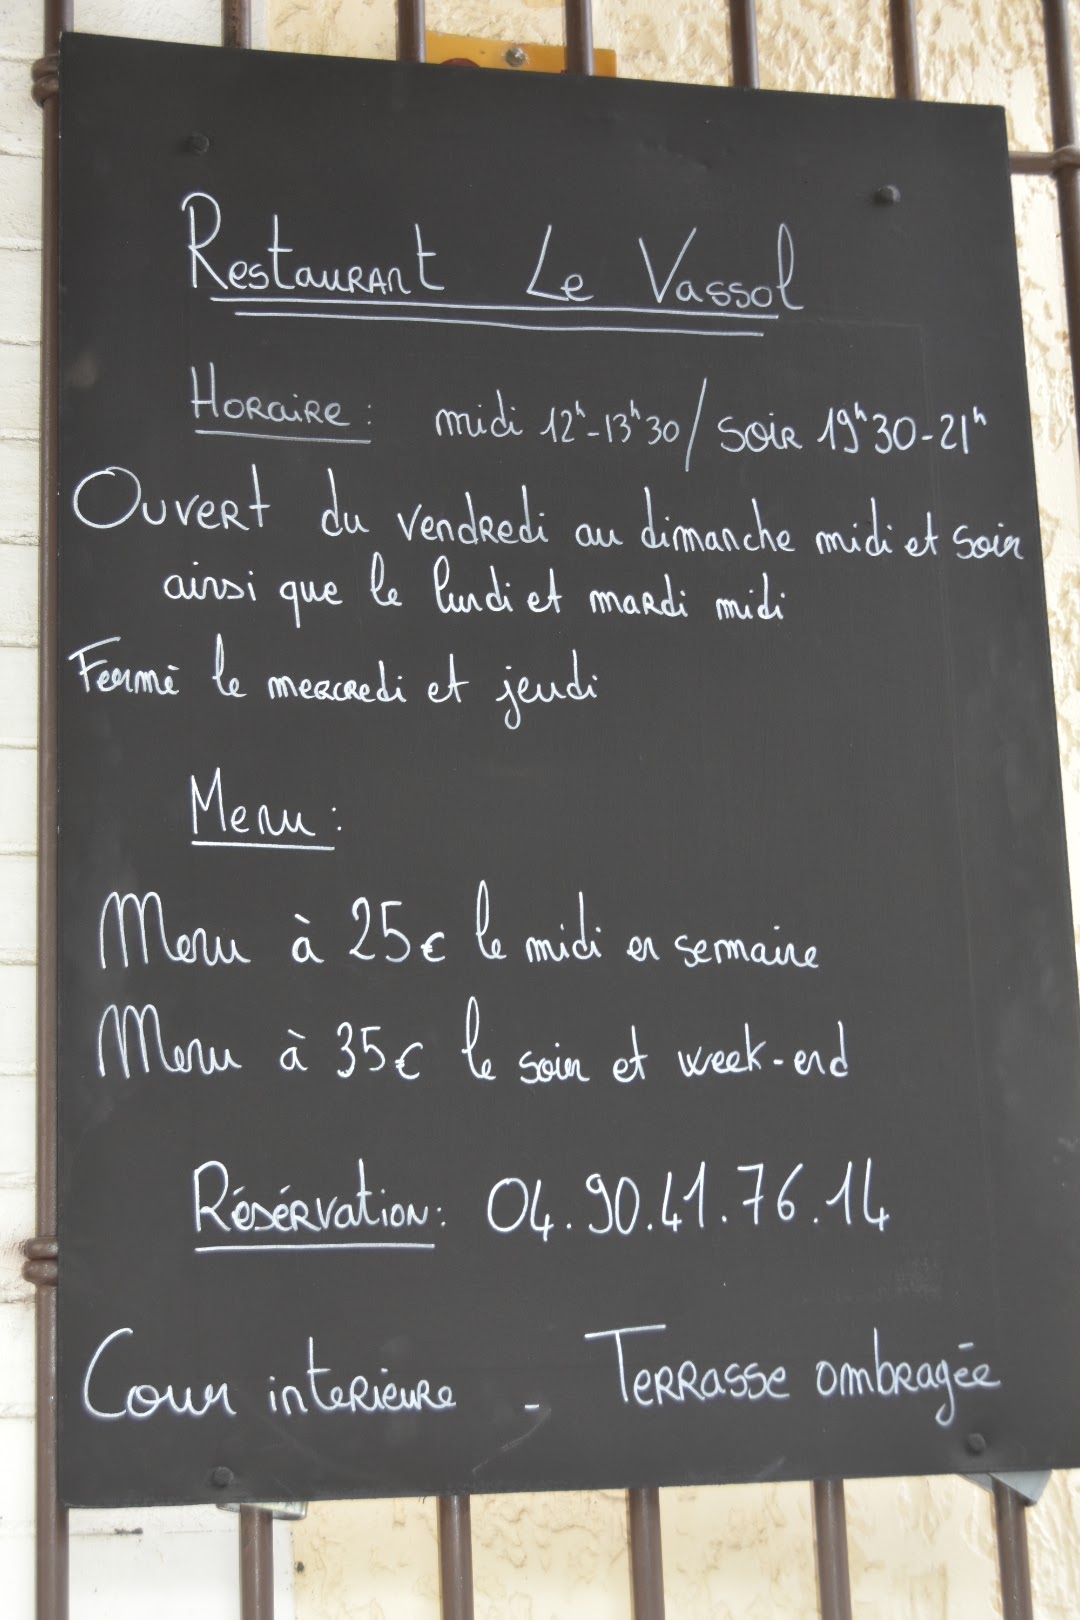 Restaurant Le Vassol
Horaire : midi 12h-13h30 / soir 19h30-21h
Ouvert du vendredi au dimanche midi et soir
ainsi que le lundi et mardi midi
Fermé le mercredi et jeudi
Menu :
Menu à 25€ le midi en semaine
Menu à 35€ le soir et week-end
Résérvation : 04.90.41.76.14
Cour interieure - Terrasse ombragée